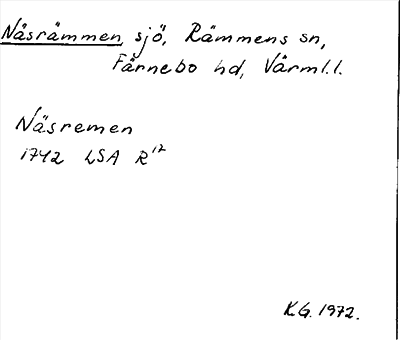 Näsrämmen, sjö, Rämmens sn,
Färnebo hd, Värml.l.
Näsremen
1742 LSA R¹²
K.G. 1972.